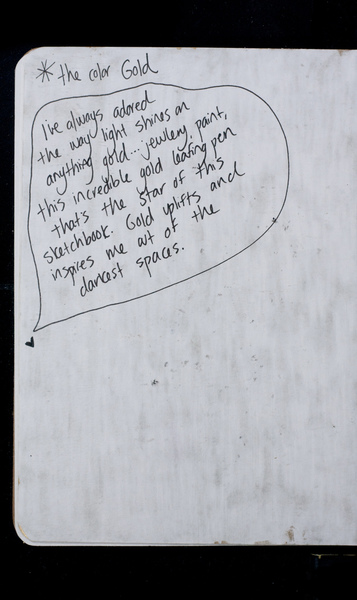 * the color Gold
I've always adored
the way light shines on
anything gold... jewlery, paint,
this incredible gold leafing pen
that's the star of this
sketchbook. Gold uplifts and
inspires me out of the
darkest spaces.